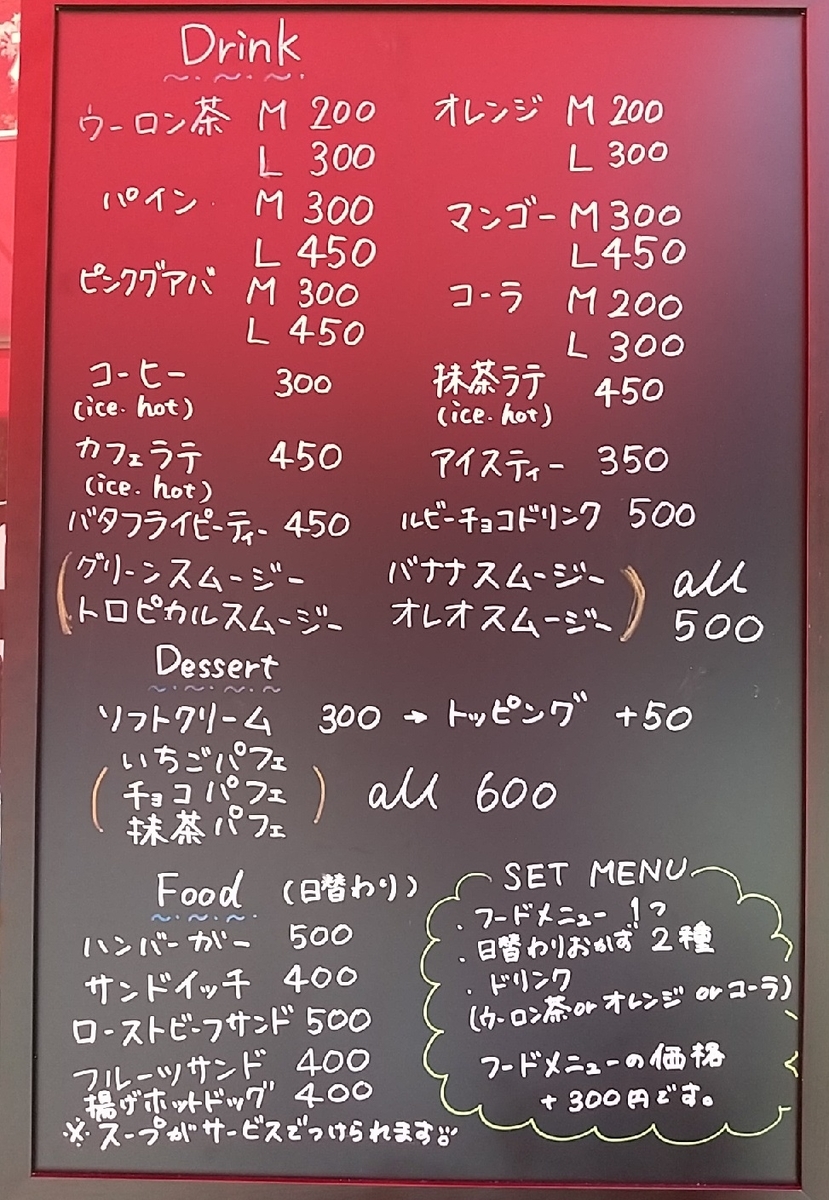 Drink
ウーロン茶 M 200 オレンジ M 200
L 300 L 300
パイン M 300 マンゴー M 300
L 450 L 450
ピンクグアバ M 300 コーラ M 200
L 450 L 300
コーヒー 300 抹茶ラテ 450
(ice.hot) (ice.hot)
カフェラテ 450 アイスティー 350
(ice.hot)
バタフライピーティー 450 ルビーチョコドリンク 500
(グリーンスムージー バナナスムージー) all
(トロピカルスムージー オレオスムージー) 500
Dessert
ソフトクリーム 300 → トッピング +50
いちごパフェ
(チョコパフェ) all 600
抹茶パフェ
Food (日替わり)
ハンバーガー 500
サンドイッチ 400
ローストビーフサンド 500
フルーツサンド 400
揚げホットドッグ 400
※スープがサービスでつけられます
SET MENU
・フードメニュー 1つ
・日替わりおかず 2種
・ドリンク
(ウーロン茶 or オレンジ or コーラ)
フードメニューの価格
+300円です。